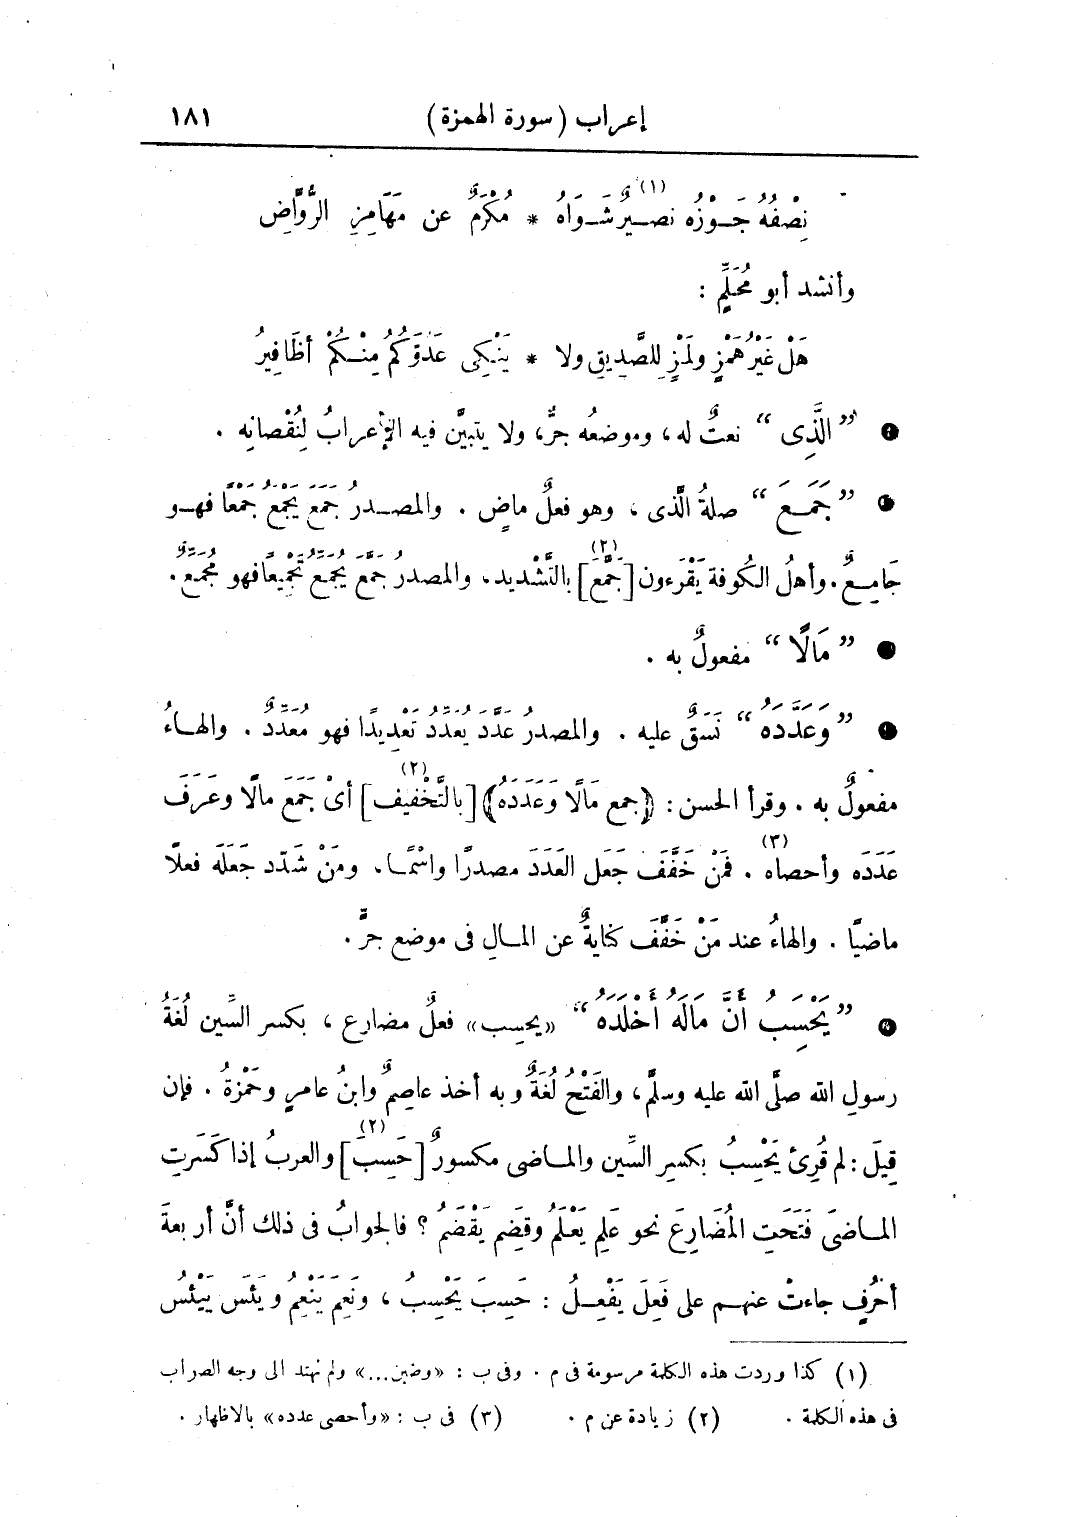 إعراب (سورة الهمزة) ١٨١
نِصْفُهُ جَوْزُه نصيرٌ(١) شَوَاهُ * مُكْرَمٌ عن مَهَامِزِ الرُّوَّاضِ
وأنشد أبو مُحَلِّمٍ :
هَلْ غَيْرُ هَمْزٍ ولَمْزٍ لِلصَّدِيقِ ولا * يَنْكِى عَدُوَّكُمُ مِنْكُمْ أظَافِيرُ
● ”الَّذِى“ نعتٌ له، وموضعُه جرٌّ، ولا يتبيَّن فيه الإعرابُ لِنُقْصانِه .
● ”جَمَعَ“ صلةُ الَّذى ، وهو فعلٌ ماضٍ . والمصدرُ جَمَعَ يَجْمَعُ جَمْعًا فهو
جَامِعٌ. وأهلُ الكُوفة يَقْرَءون [جَمَّعَ](٢) بالتَّشْديد، والمصدرُ جَمَّعَ يُجَمِّعُ تَجْمِيعًا فهو مُجَمِّعٌ.
● ”مَالًا“ مفعولٌ به .
● ”وَعَدَّدَهُ“ نَسَقٌ عليه . والمصدرُ عَدَّدَ يُعَدِّدُ تَعْدِيدًا فهو مُعَدِّدٌ . والهاءُ
مفعولٌ به . وقرأ الحسن : ﴿جمع مَالًا وَعَدَدَهُ﴾ [بالتَّخْفيف](٢) أىْ جَمَعَ مالًا وعَرَفَ
عَدَدَه وأحصاه(٣) . فمَنْ خَفَّفَ جَعَل العَدَدَ مصدرًا واسْمًا، ومَنْ شَدّد جَعَلَه فعلًا
ماضيًا . والهاءُ عند مَنْ خَفَّفَ كنايةٌ عن المالِ فى موضع جرٍّ .
● ”يَحْسِبُ أَنَّ مَالَهُ أَخْلَدَهُ“ «يحسِب» فعلٌ مضارع ، بكسر السِّين لُغَةُ
رسولِ الله صلَّى الله عليه وسلَّم، والفَتْحُ لُغَةٌ وبه أخذ عاصِمٌ وابنُ عامرٍ وحَمْزةُ . فإن
قِيلَ : لم قُرِئَ يَحْسِبُ بكسرِ السِّين والماضى مكسورٌ [حَسِبَ](٢) والعربُ إذا كَسَرَتِ
الماضىَ فَتَحَتِ المُضَارِعَ نحو عَلِم يَعْلَمُ وقضِم يَقْضَمُ ؟ فالجوابُ فى ذلك أنَّ أربعةَ
أحْرُفٍ جاءتْ عنهم على فَعِلَ يَفْعِلُ : حَسِبَ يَحْسِبُ ، ونَعِمَ يَنْعِمُ ويَئسَ يَيْئسُ
(١) كذا وردت هذه الكلمة مرسومة فى م . وفى ب : «وضبن...» ولم نهتد الى وجه الصراب
فى هذه الكلمة . (٢) زيادة عن م . (٣) فى ب : «وأحصى عدده» بالاظهار .